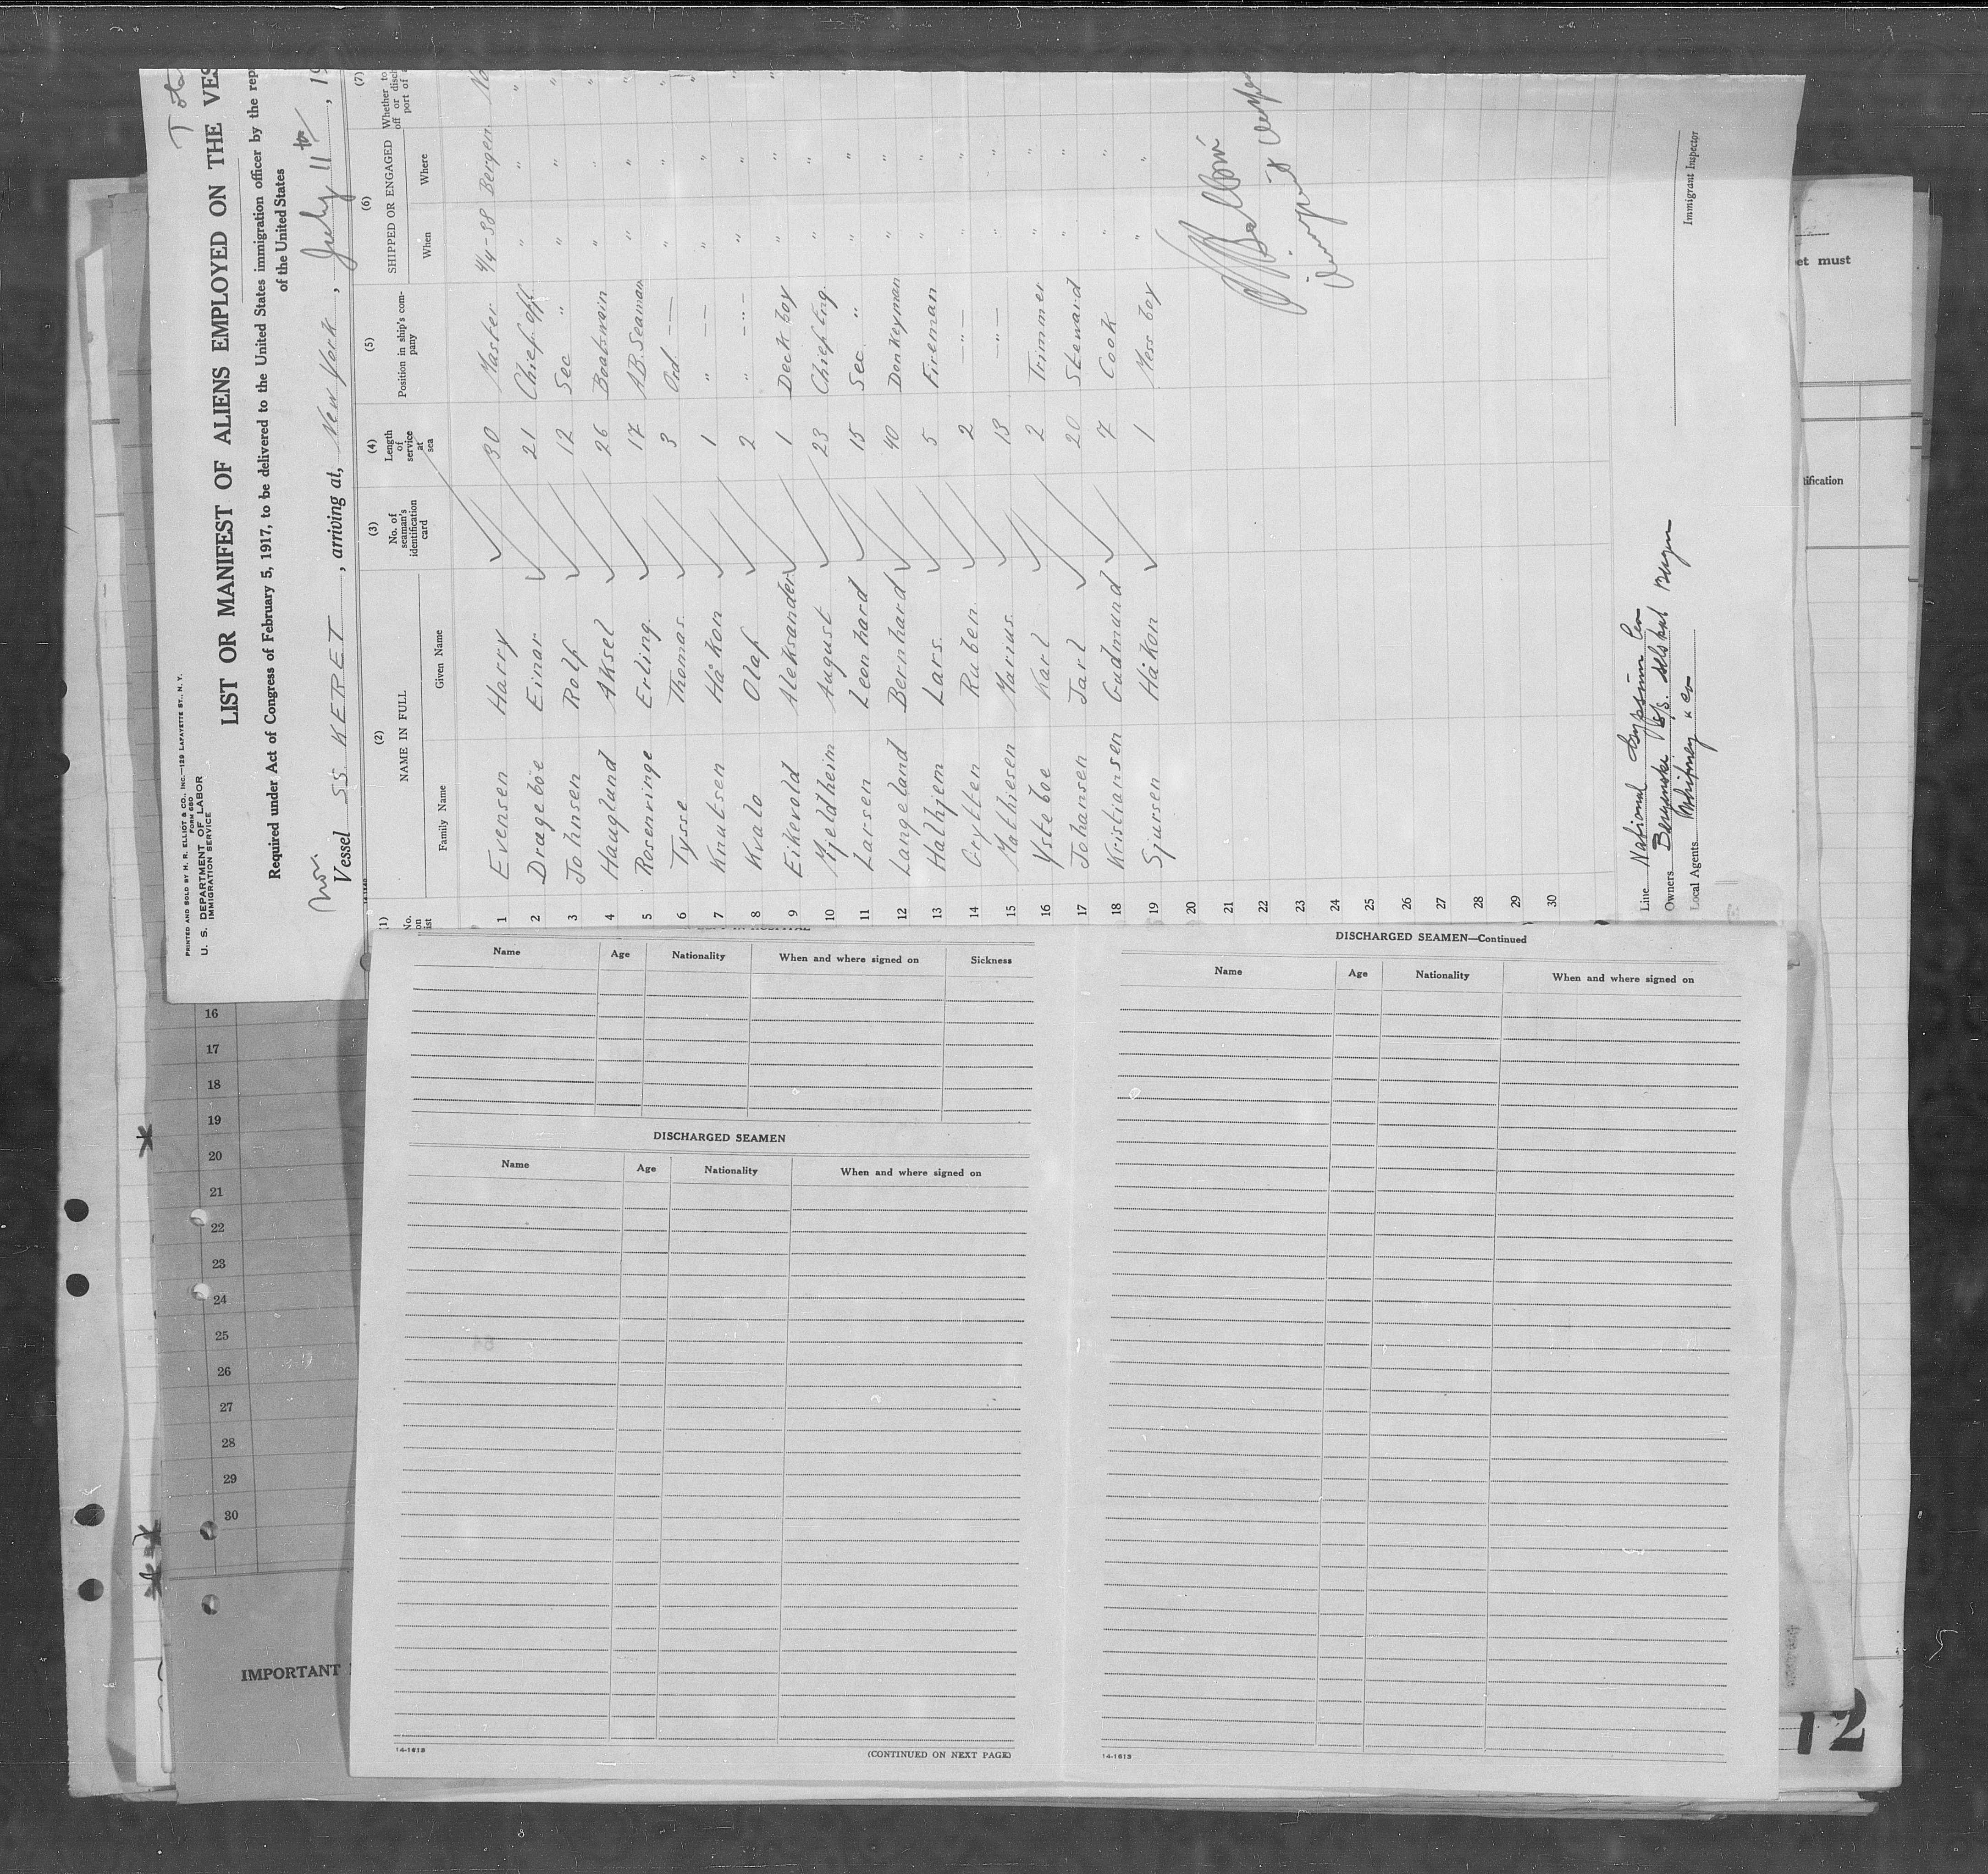 PRINTED AND SOLD BY H. R. ELLIOT & CO., INC.—129 LAFAYETTE ST., N. Y.
FORM 680
U. S. DEPARTMENT OF LABOR
IMMIGRATION SERVICE
LIST OR MANIFEST OF ALIENS EMPLOYED ON THE VES
Required under Act of Congress of February 5, 1917, to be delivered to the United States immigration officer by the rep
of the United States
Nor.
Vessel SS. KERET, arriving at, New York, July 11th, 19
(1) (2) (3) (4) (5) (6) (7)
No. on list NAME IN FULL No. of seaman's identification card Length of service at sea Position in ship's company SHIPPED OR ENGAGED Whether to
off or disch
port of
Family Name Given Name When Where
1 Evensen Harry 30 Master 4/4-38 Bergen No
2 Dragebøe Einar 21 Chief. off. " " "
3 Johnsen Rolf 12 Sec " " " "
4 Hauglund Aksel 26 Boatswain " " "
5 Rosenvinge Erling. 17 AB. Seaman " " "
6 Tysse Thomas. 3 Ord —— " " "
7 Knutsen Håkon 1 " —— " " "
8 Kvalo Olaf 2 " —"— " " "
9 Eikevold Aleksander 1 Deck boy " " "
10 Mjeldheim August 23 Chief Eng. " " "
11 Larsen Leonhard 15 Sec. " " " "
12 Langeland Bernhard 40 Donkeyman " " "
13 Halhjem Lars. 5 Fireman " " "
14 Grytten Ruben 2 —"— " " "
15 Mathiesen Marius. 13 —"— " " "
16 Ystebøe Karl 2 Trimmer " " "
17 Johansen Jarl 20 Steward " " "
18 Kristiansen Gudmund 7 Cook " " "
19 Sjursen Håkon 1 Mess boy " " "
20
21
22
23
24
25
26
27
28
29
30
Line National Gypsum Co
Owners Bergenske D/S. Selskab Bergen
Local Agents Whitney & Co
Immigrant Inspector
et must
tification
16
17
18
19
20
21
22
23
24
25
26
27
28
29
30
IMPORTANT
Name Age Nationality When and where signed on Sickness
DISCHARGED SEAMEN
Name Age Nationality When and where signed on
14-1613
(CONTINUED ON NEXT PAGE)
DISCHARGED SEAMEN—Continued
Name Age Nationality When and where signed on
14-1613
12